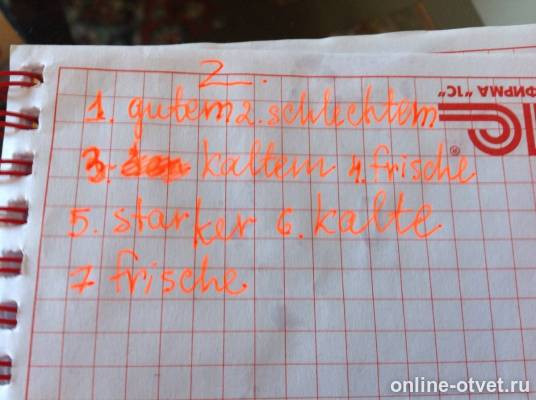 ФИРМА "1С"
2.
1. gutem 2. schlechtem
3. kaltem 4. frische
5. starker 6. kalte
7 frische
1С®
online-otvet.ru